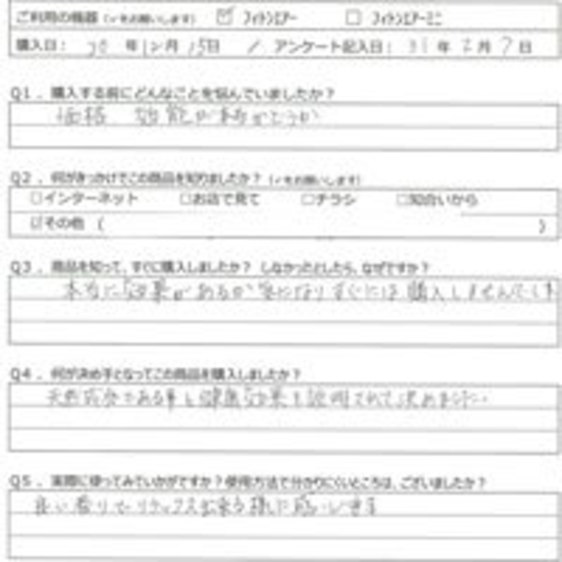 ご利用の機器（✓をお願いします） ☑ フィトンエアー □ フィトンエアーミニ
購入日： 30 年 12 月 15 日 ／ アンケート記入日： 31 年 2 月 7 日
Q1．購入する前にどんなことを悩んでいましたか？
価格 効能が本当かどうか
Q2．何がきっかけでこの商品を知りましたか？（✓をお願いします）
□インターネット □お店で見て □チラシ □知合いから
☑その他（ ）
Q3．商品を知って、すぐに購入しましたか？ しなかったとしたら、なぜですか？
本当に効果があるか気になりすぐには購入しませんでした
Q4．何が決め手となってこの商品を購入しましたか？
天然成分である事と健康効果を説明されて決めました
Q5．実際に使ってみていかがですか？使用方法で分かりにくいところは、ございましたか？
良い香りでリラックス出来る様に感じます